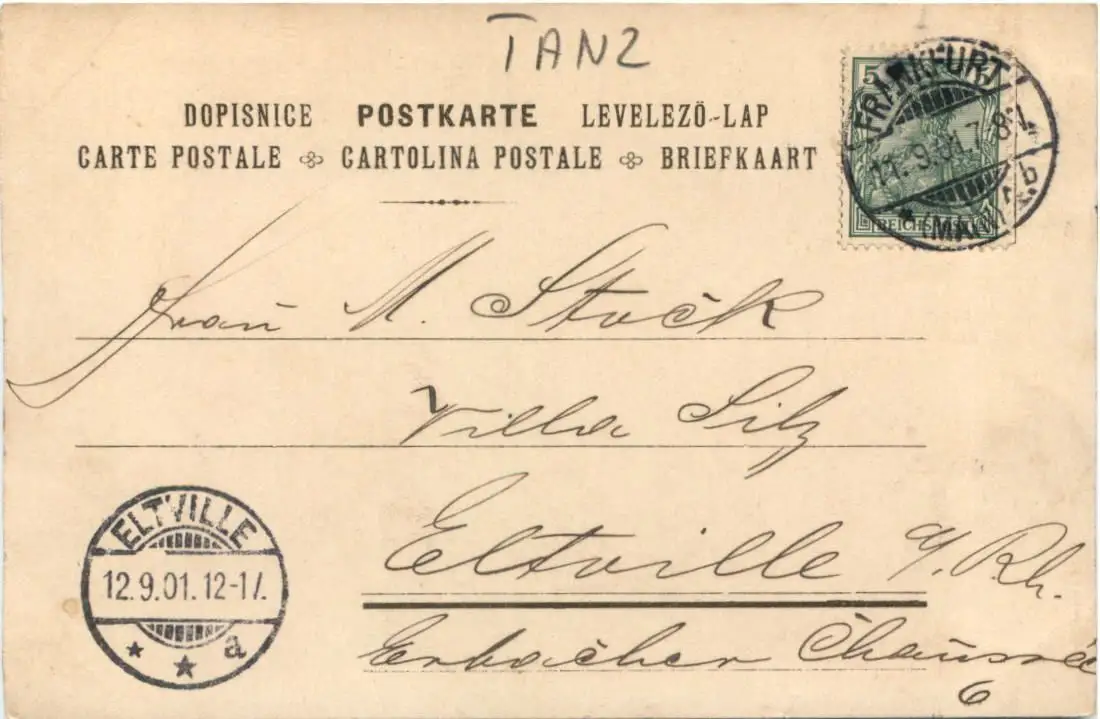 TANZ
DOPISNICE POSTKARTE LEVELEZÖ-LAP
CARTE POSTALE CARTOLINA POSTALE BRIEFKAART
5
FRANKFURT
11.9.01.7-8N.
(MAIN) 1. b
REICHSPOST
Frau M. Stock
Villa Silz
Eltville a/Rh.
Erbacher Chaussée
6
ELTVILLE
12.9.01.12-1V.
a